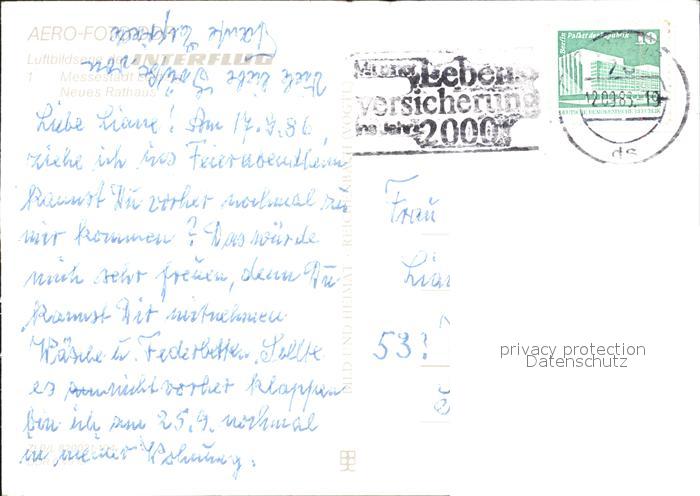 AERO-FOTO
Luftbildserie der INTERFLUG
1 Messestadt
Neues Rathaus
Liebe Liane! Am 17.9.86
ziehe ich ins Feierabendheim
kannst Du vorher nochmal zu
mir kommen? Das würde
mich sehr freuen, denn Du
kannst Dir mitnehmen
Wäsche u. Federbetten. Sollte
es nicht vorher klappen
bin ich am 25.9. nochmal
in meiner Wohnung.
Viele liebe Grüße von
Tante
BILD UND HEIMAT · REICHENBACH
Lebens
versicherung
ins Jahr
2000
Berlin Palast der Republik
10
DEUTSCHE DEMOKRATISCHE REPUBLIK
Frau
53
privacy protection
Datenschutz